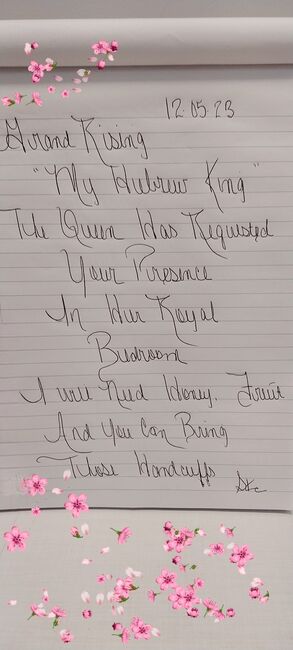 12.05.23
Grand Rising
"My Hebrew King"
The Queen Has Requested
Your Presence
In Her Royal
Bedroom
I will Need Honey, Fruit
And You Can Bring
Those Handcuffs